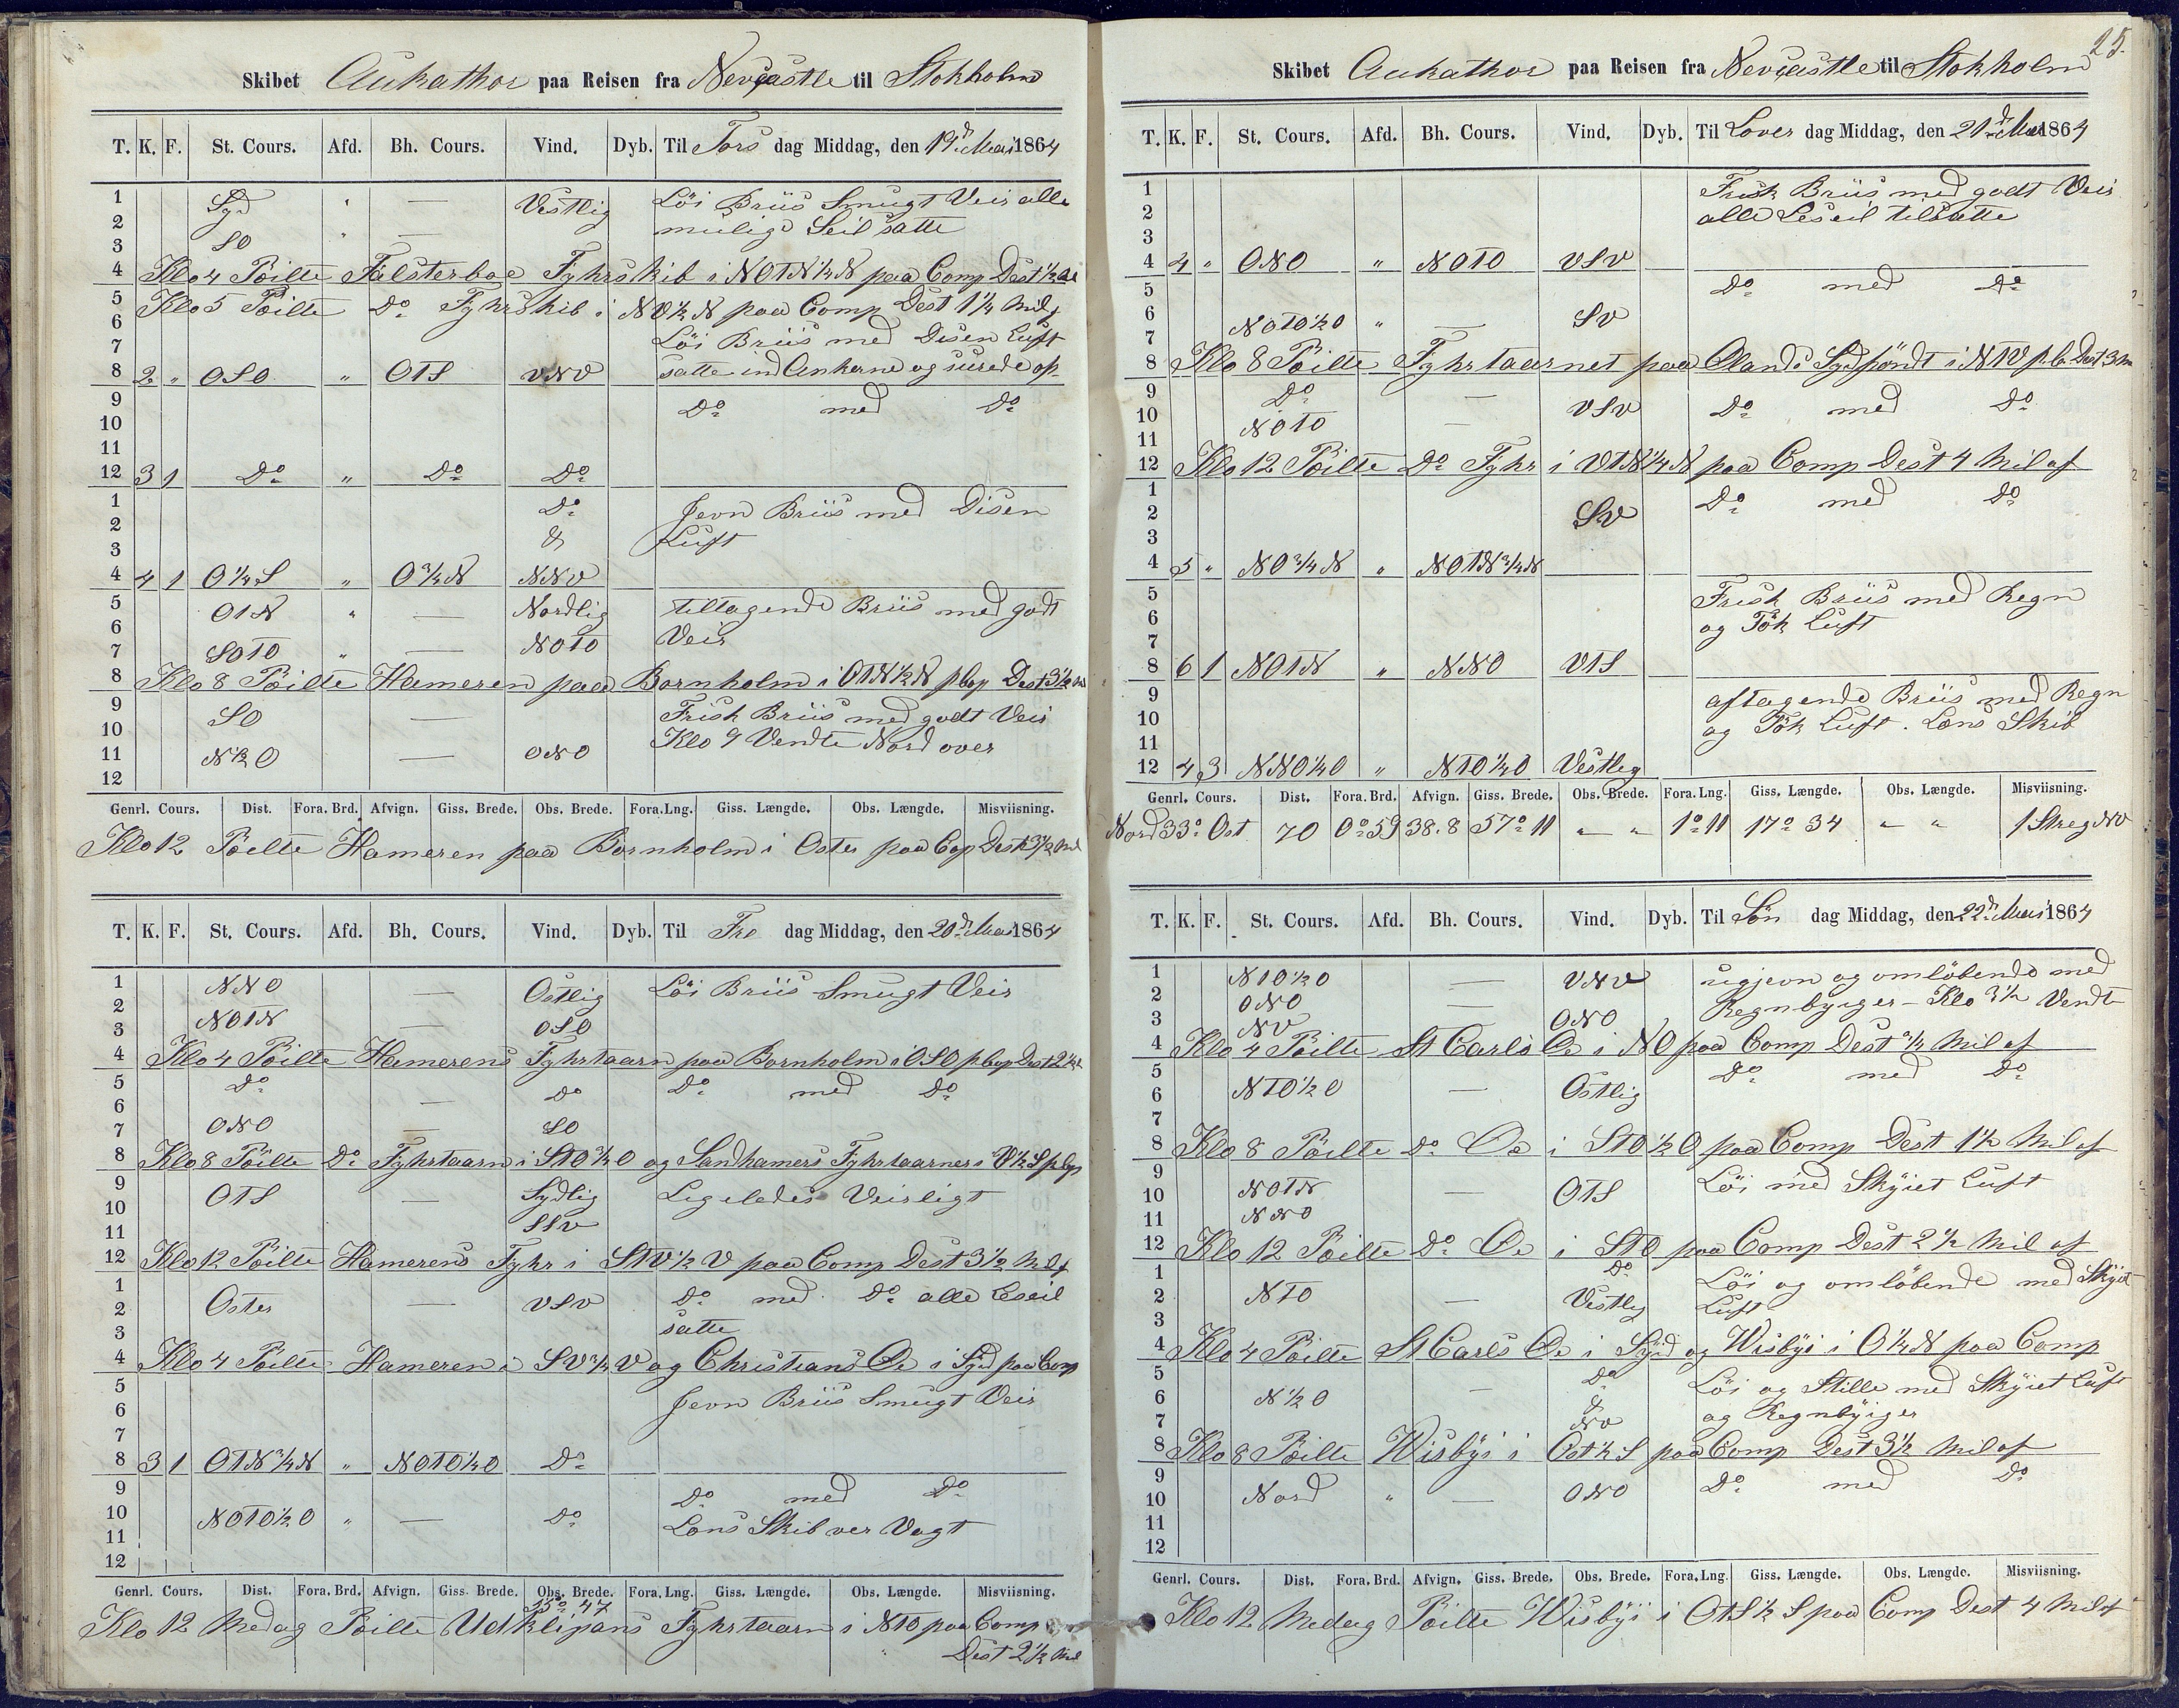 Skibet Aukathor paa Reisen fra Newcastle til Stokholm
T. K. F. St. Cours. Afd. Bh. Cours. Vind. Dyb. Til Tors dag Middag, den 19d Mai 1864
1 Syd " — Vestlig Löi Briis Smugt Veir alle
2 mulige Seil satte
3 SO " —
4 Klo 4 Peilte Falsterboe Fyhrskib i NOTN ¼ N paa Comp Dest ½ Mil
5 Klo 5 Peilte Do Fyhrskib i NO ½ N paa Comp Dest 1 ¼ Mil af
6 Löi Briis med Disen Luft
7
8 2 " OSO " OTS VNV satte ind Ankerne og surede op
9 Do med Do
10
11
12 3 1 Do " Do Do
1 Do Jevn Briis med Disen
2 & Luft
3
4 4 1 O ¼ S " O ¾ N NNV
5 OTN " — Nordlig tiltagende Briis med godt
6 Veir
7 SOTO " — NOTO
8 Klo 8 Peilte Hameren paa Bornholm i OTN ½ N p Cop Dest 3 ½ M
9 SO — Frisk Briis med godt Veir
10 Klo 9 Vendte Nord over
11 N ½ O — ONO
12
Genrl. Cours. Dist. Fora. Brd. Afvign. Giss. Brede. Obs. Brede. Fora. Lng. Giss. Længde. Obs. Længde. Misviisning.
Klo 12 Peilte Hameren paa Bornholm i Oster paa Cop Dest 3 ½ Mil
T. K. F. St. Cours. Afd. Bh. Cours. Vind. Dyb. Til Fre dag Middag, den 20d Mai 1864
1 NNO — Ostlig Löi Briis Smugt Veir
2 NOTN
3 — OSO
4 Klo 4 Peilte Hamerens Fyhrtaarn paa Bornholm i OSO p Cop Dest 2
5 Do — Do Do med Do
6
7 ONO SO
8 Klo 8 Peilte Do Fyhrtaarn i STO ¾ O og Sandhamers Fyhrtaarner i V ½ S p Cop
9 OTS — Sydlig Ligeledes Veirligt
10
11 SSV
12 Klo 12 Peilte Hamerens Fyhr i STV ½ V paa Comp Dest 3 ½ Mil af
1 Oster — VSV Do med Do alle Leseil
2
3 satte
4 Klo 4 Peilte Hameren i SV ¾ V og Christians Oe i Syd paa Comp
5 Jevn Briis Smugt Veir
6
7
8 3 1 OTN ¾ N " NOTO ¼ O Do
9 Do med Do
10 NOTO ½ O " — Do Lens Skib ver Vagt
11
12
Genrl. Cours. Dist. Fora. Brd. Afvign. Giss. Brede. Obs. Brede. Fora. Lng. Giss. Længde. Obs. Længde. Misviisning.
55° 47
Klo 12 Medag Peilte Utklipans Fyhrtaarn i NTO paa Comp
Dest 2 ½ Mil
25.
Skibet Aukathor paa Reisen fra Newcastle til Stokholm
T. K. F. St. Cours. Afd. Bh. Cours. Vind. Dyb. Til Lover dag Middag, den 21d Mai 1864
1 Frisk Briis med godt Veir
2 alle Leseil tilsatte
3
4 4 " ONO " NOTO VSV
5 Do med Do
6 NOTO ½ O " — SV
7
8 Klo 8 Peilte Fyhrtaarnet paa Olands Sydpöndt i NTV p Co Dest 3 M
9 Do — VSV Do med Do
10 NOTO —
11
12 Klo 12 Peilte Do Fyhr i VTN ¼ N paa Comp Dest 4 Mil af
1 Do med Do
2 SV
3
4 5 " NO ¾ N " NOTN ¾ N
5 Frisk Briis med Regn
6 og Tök Luft
7
8 6 1 NOTN " NNO VTS
9 aftagende Briis med Regn
10 og Tök Luft. Lens Skib
11
12 4 3 NNO ¼ O " NTO ¼ O Vestleg
Genrl. Cours. Dist. Fora. Brd. Afvign. Giss. Brede. Obs. Brede. Fora. Lng. Giss. Længde. Obs. Længde. Misviisning.
Nord 33° Ost 70 0° 59 38.8 57° 11 " " 1° 11 17° 34 " " 1 Streg NV
T. K. F. St. Cours. Afd. Bh. Cours. Vind. Dyb. Til Sön dag Middag, den 22d Mai 1864
1 NTO ½ O — VNV ugjevn og omlöbende med
2 ONO — Regnbyiger – Klo 3 ½ Vendt
3 NV ONO
4 Klo 4 Peilte St Carls Oe i NO paa Comp Dest ¾ Mil af
5 Do med Do
6 NTO ½ O — Ostlig
7
8 Klo 8 Peilte Do Oe i STO ½ O paa Comp Dest 1 ½ Mil af
9 NOTN — OTS Löi med Skyiet Luft
10
11 NNO
12 Klo 12 Peilte Do Oe i STO paa Comp Dest 2 ½ Mil af
1 Do Löi og omlöbende med Skyiet
2 NTO — Vestleg Luft
3
4 Klo 4 Peilte St Carls Oe i Syd og Wisbyi i O ¼ N paa Comp
5 Do Löi og Stille med Skyiet Luft
6 N ½ O — & og Regnbyiger
7 NV
8 Klo 8 Peilte Wisbyi i Ost ½ S paa Comp Dest 3 ½ Mil af
9 Nord " — ONO Do med Do
10
11
12
Genrl. Cours. Dist. Fora. Brd. Afvign. Giss. Brede. Obs. Brede. Fora. Lng. Giss. Længde. Obs. Længde. Misviisning.
Klo 12 Medag Peilte Wisbyi i OTS ½ S paa Comp Dest 4 Mil af